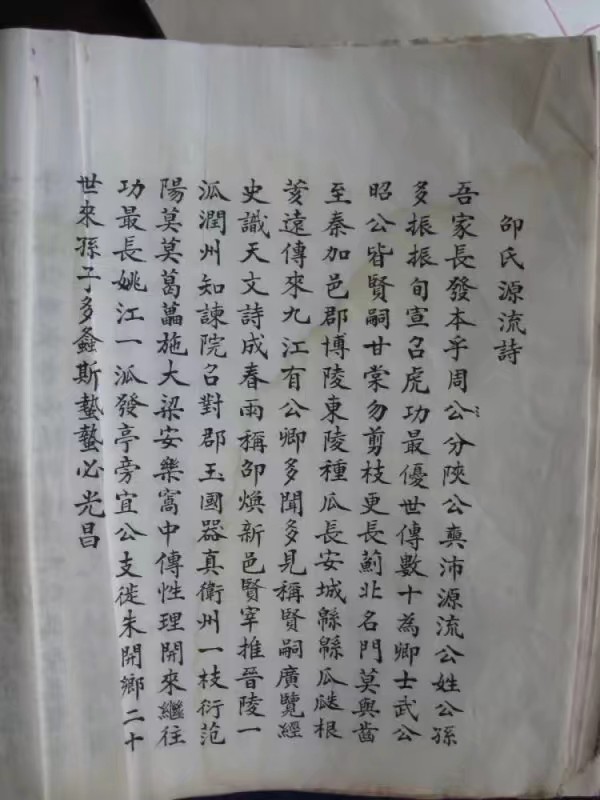 邵氏源流詩
吾家長發本乎周公分陝公奭沛源流公姓公孫
多振振旬宣召虎功最優世傳數十為卿士武公
昭公皆賢嗣甘棠勿剪枝更長薊北名門莫與齒
至秦加邑郡博陵東陵種瓜長安城緜緜瓜瓞根
荄遠傳來九江有公卿多聞多見稱賢嗣廣覽經
史識天文詩成春雨稱邵煥新邑賢宰推晉陵一
派潤州知諫院召對郡玉國器真衛州一枝衍范
陽莫莫葛藟施大梁安樂窩中傳性理開來繼往
功最長姚江一派發亭旁宜公支徙朱開鄉二十
世來孫子多螽斯蟄蟄必光昌